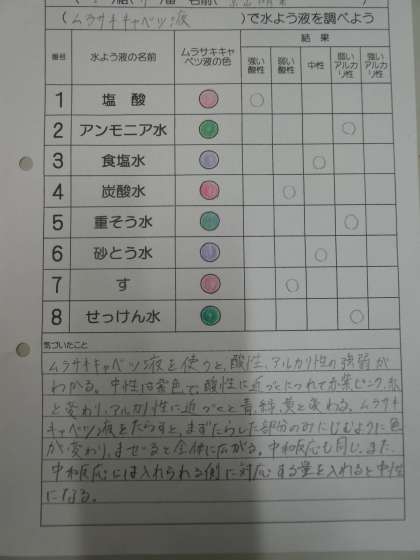 (ムラサキキャベツ液)で水よう液を調べよう
番号 水よう液の名前 ムラサキキャベツ液の色 結果
強い酸性 弱い酸性 中性 弱いアルカリ性 強いアルカリ性
1 塩酸 ○
2 アンモニア水 ○
3 食塩水 ○
4 炭酸水 ○
5 重そう水 ○
6 砂とう水 ○
7 す ○
8 せっけん水 ○
気づいたこと
ムラサキキャベツ液を使うと、酸性、アルカリ性の強弱が
わかる。中性は紫色で、酸性に近づくにつれて赤紫、ピンク、赤
と変わり、アルカリ性に近づくと青、緑、黄と変わる。ムラサキ
キャベツ液をたらすと、まずたらした部分のみにじむように色
が変わり、まぜると全体に広がる。中和反応も同じ。また、
中和反応には入れられる側に対応する量を入れると中性
になる。